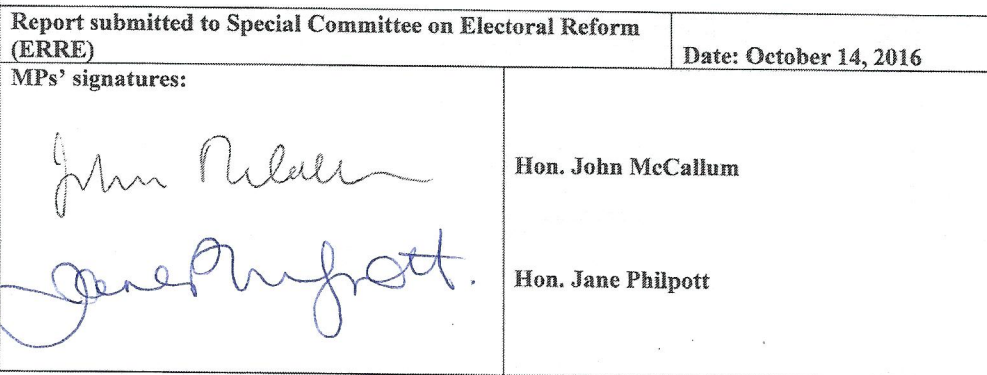 Report submitted to Special Committee on Electoral Reform
(ERRE)
Date: October 14, 2016
MPs' signatures:
John McCallum
Hon. John McCallum
Jane Philpott.
Hon. Jane Philpott